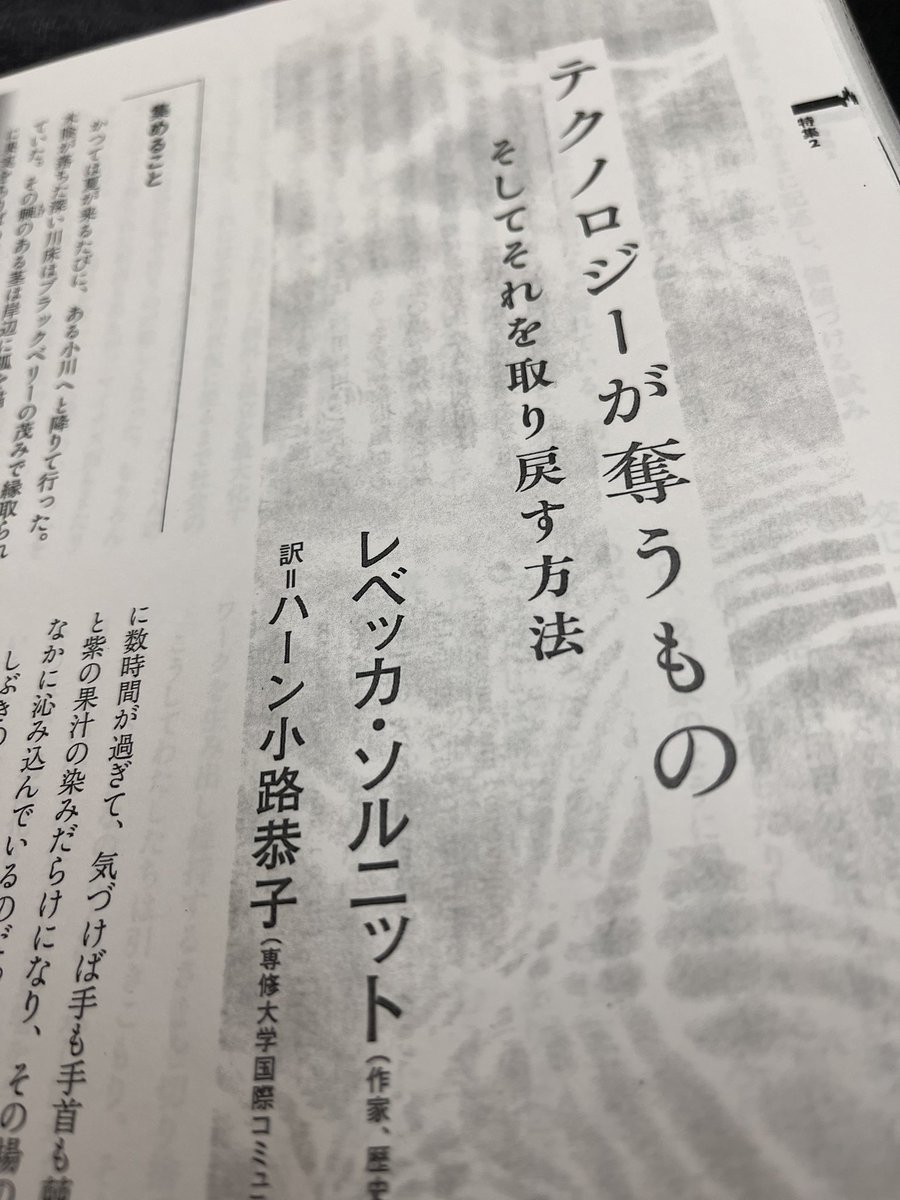 特集2
テクノロジーが奪うもの
そしてそれを取り戻す方法
レベッカ・ソルニット(作家、歴史
訳=ハーン小路恭子(専修大学国際コミュニ
集めること
かつては夏が来るたびに、ある小川へと降りて行った。
木陰が落ちた深い川床はブラックベリーの茂みで縁取られ
ていた。その棘のある茎は岸辺に弧を
に数時間が過ぎて、気づけば手も手首も
と紫の果汁の染みだらけになり、その場の
なかに沁み込んでいるのだっ
しぶきの